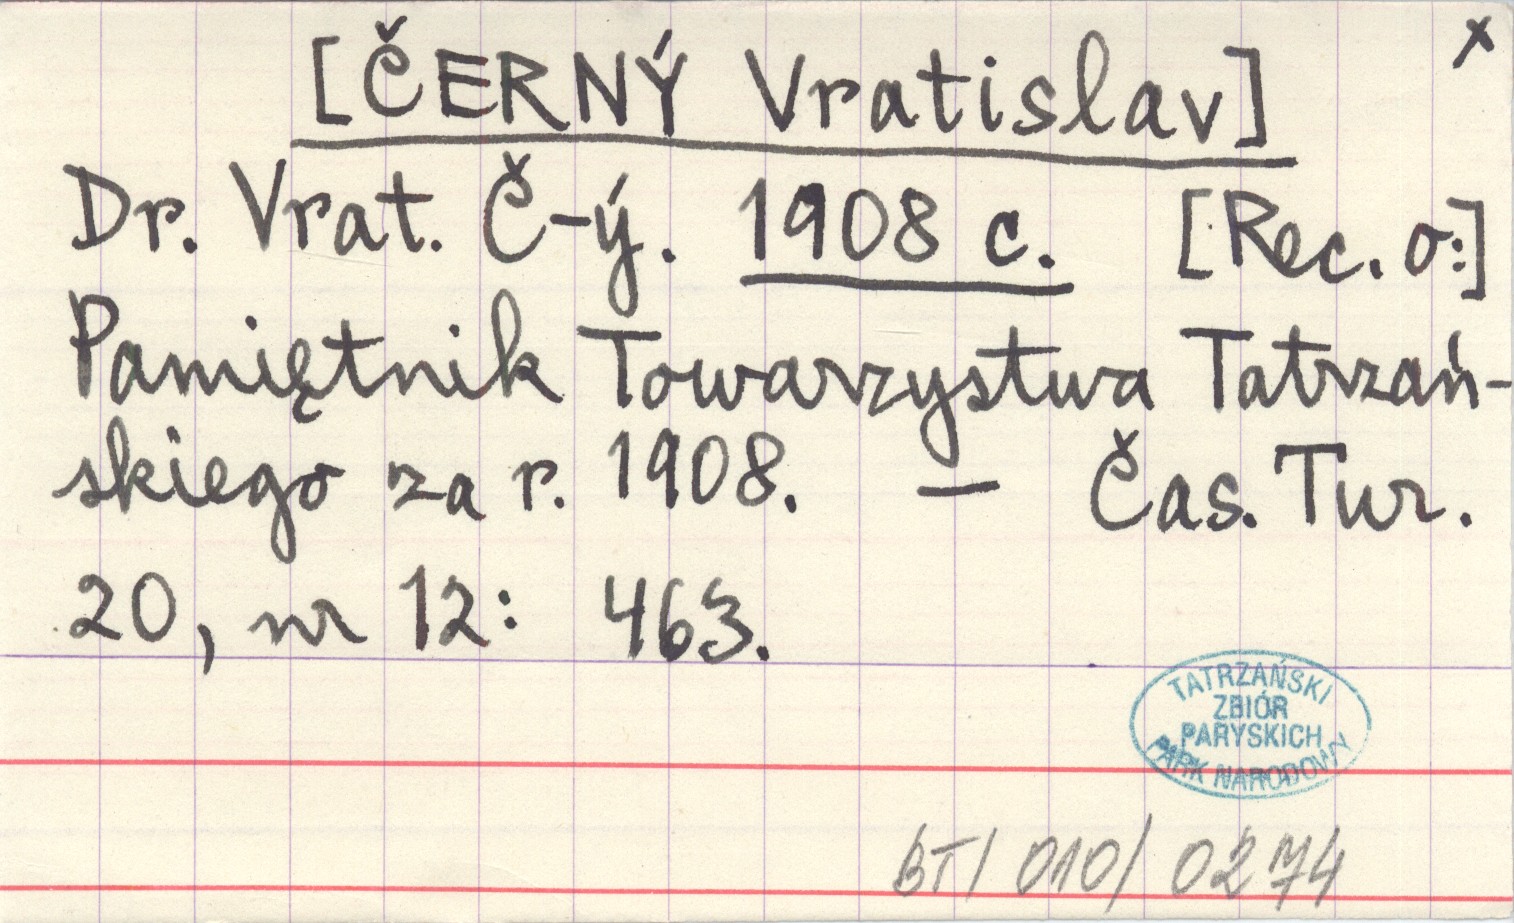 x
[ČERNÝ Vratislav]
Dr. Vrat. Č-ý. 1908 c. [Rec. o:]
Pamiętnik Towarzystwa Tatrzań-
skiego za r. 1908. — Čas. Tur.
20, nr 12: 463.
TATRZAŃSKI
ZBIÓR
PARYSKICH
PARK NARODOWY
BT/ 010/ 0274